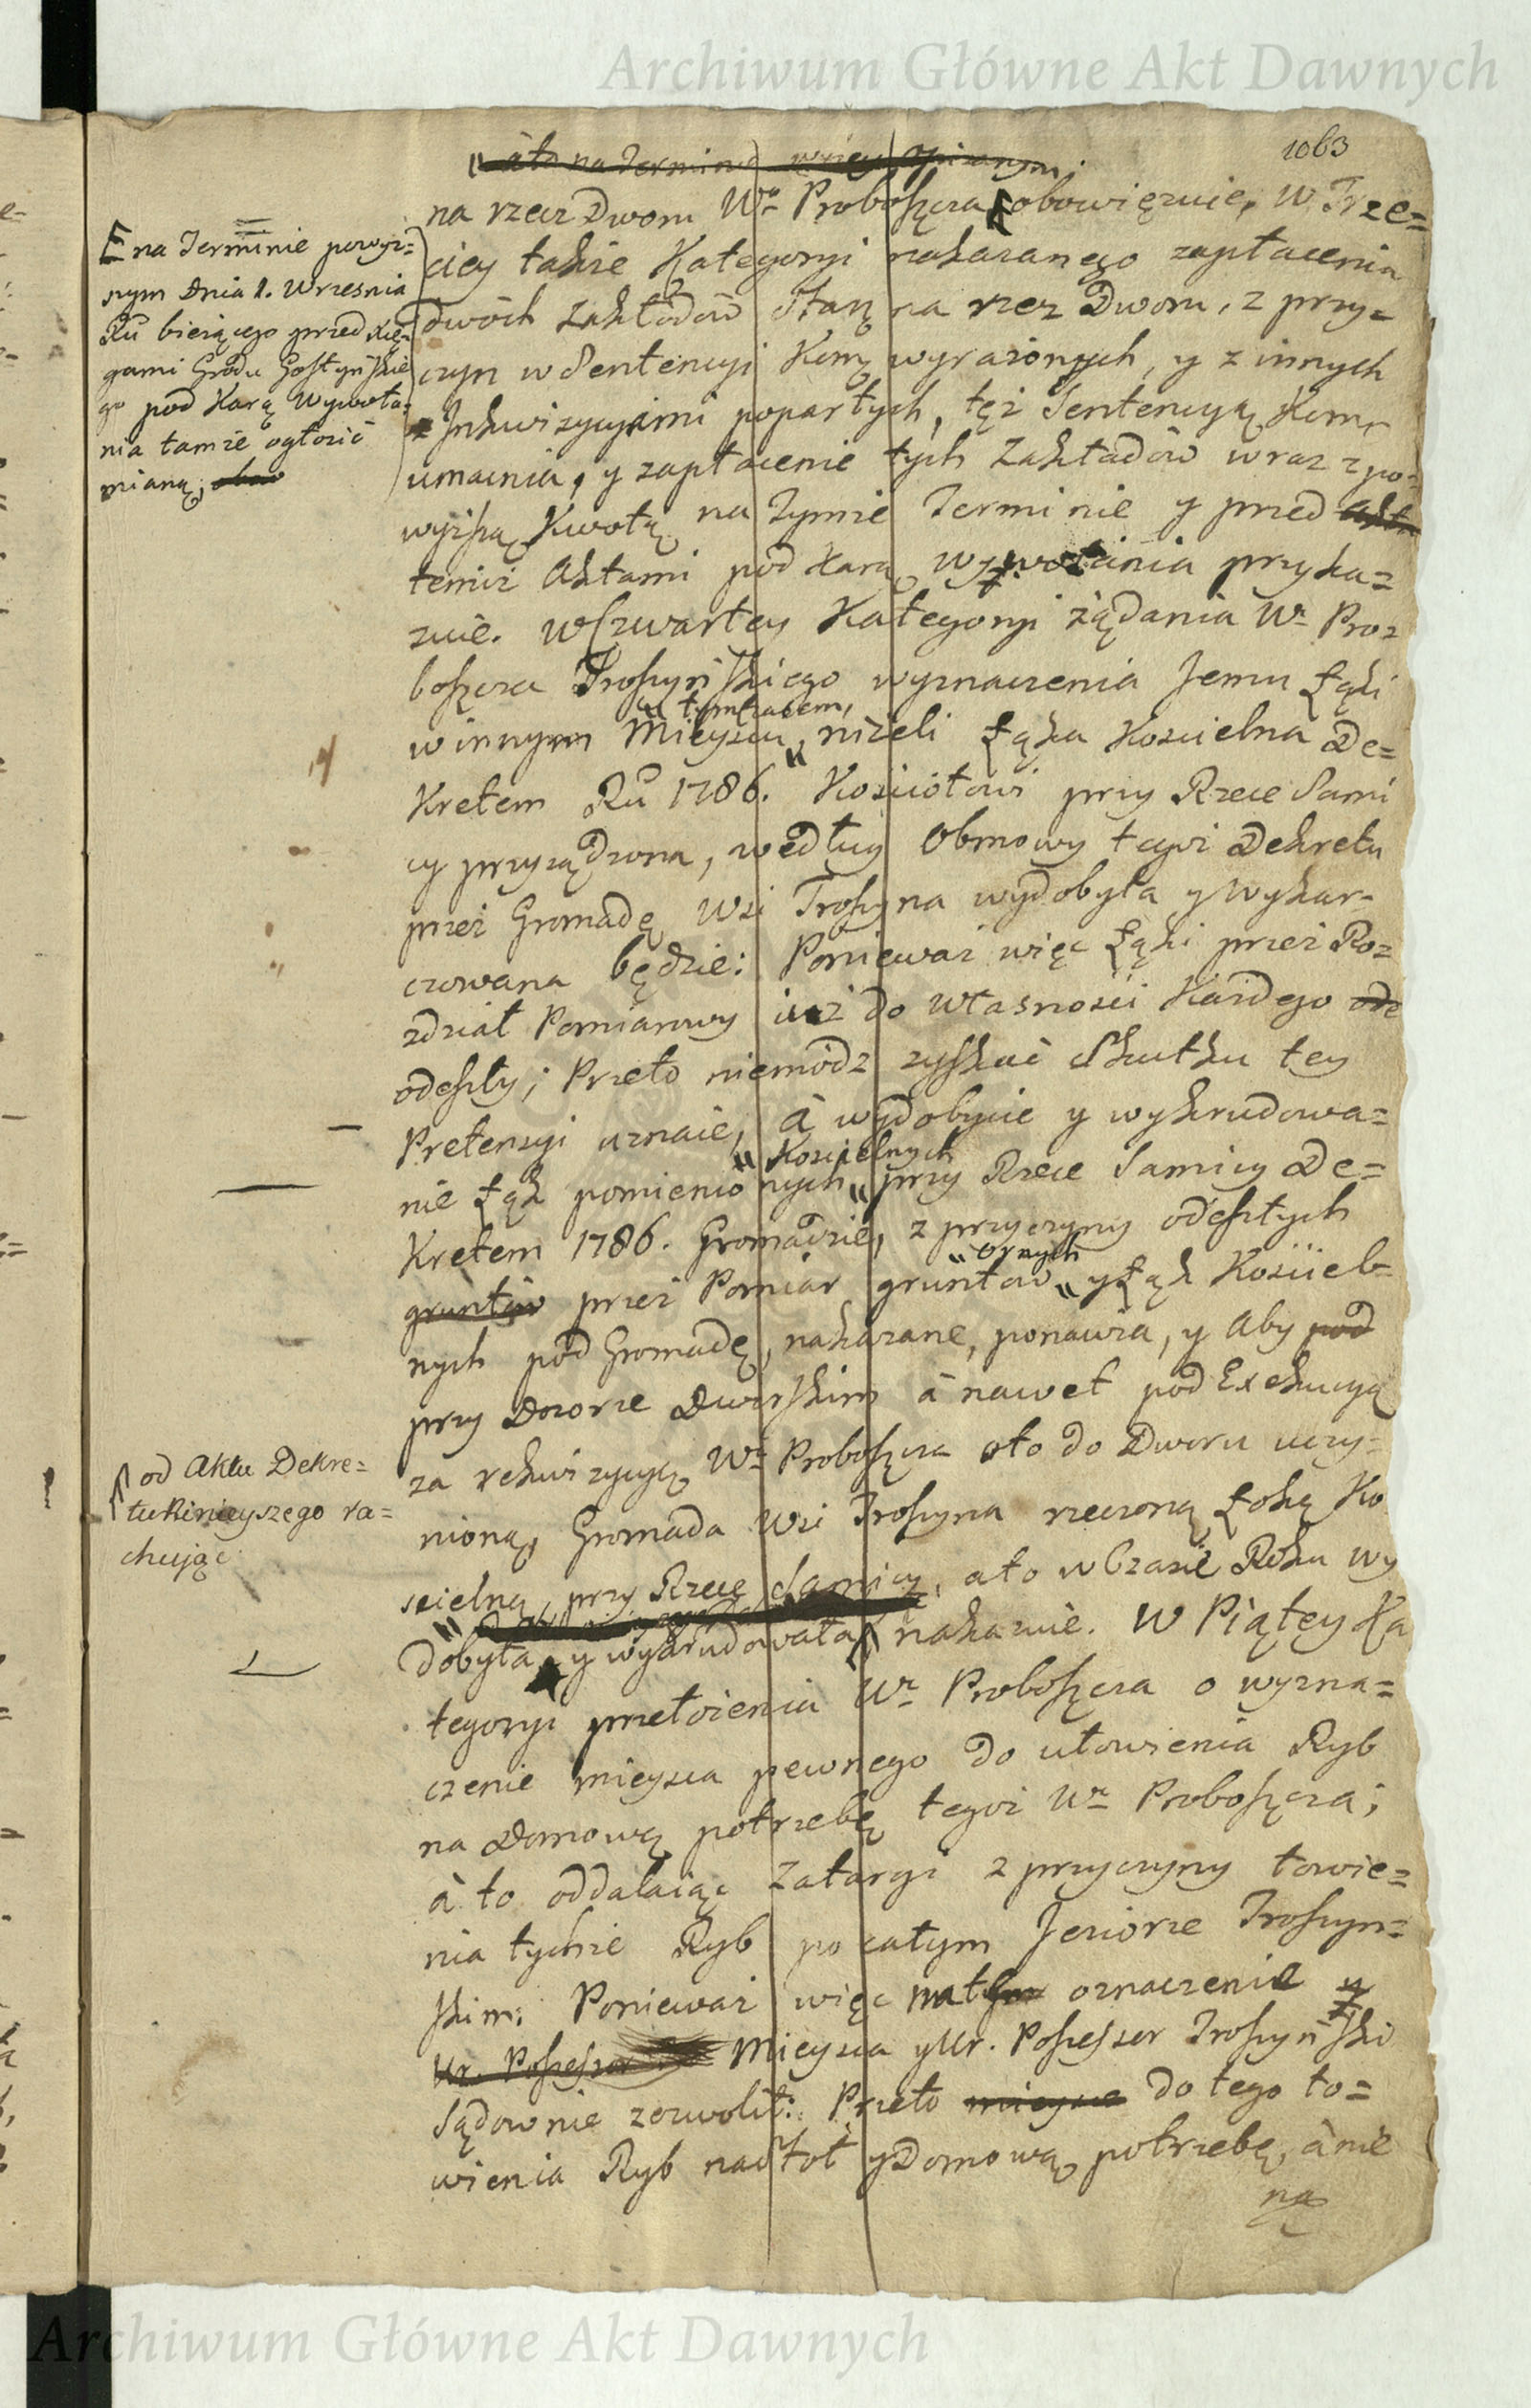 Archiwum Główne Akt Dawnych
1063
ato na Terminie wyżey opisanym
na rzecz Dworu Wo Proboszcza obowięzuie, W Trze=
ciey także Kategoryi nakazanego zapłacenia
dwóch zakładów Stu na rzecz Dworu, z przy=
czyn w Sentencyi Kom wyrażonych, y z innych
Inkwizycyami popartych, też Sentencyą Kom.
umacnia, y zapłacenie tych Zakładów wraz z po=
wyższą Kwotą na Tymże Terminie y przed akta
temiż Aktami pod karą wywołania przyka=
zuie. W Czwartey Kategoryi żądania Wo Pro=
boszcza Troszyńskiego wyznaczenia Jemu Łąki
tymczasem,
w innym Mieyscu, niżeli Łąka Koscielna De=
kretem Ru 1786. Kościołowi przy Rzece Sami
cy przysądzona, według Obmowy tegoż Dekretu
przez Gromadę Wsi Troszyna wydobyta y wykar=
czowana będzie: Ponieważ więc Łąki przez Ro=
zdział Pomiarowy iuż do własności Każdego ode
odeszły; Przeto niemódz zyskać Skutku tey
Pretensyi uznaie, à wydobycie y wykrudowa=
Koscielnych
nie Łąk pomienionych przy Rzece Samicy De=
kretem 1786. Gromadzie, z przyczyny odeszłych
ornych
gruntów przez Pomiar gruntów y Łąk Kościel=
nych pod Gromadę, nakazane, ponawia, y Aby pod
przy Dozorze Dworskim à nawet pod Exekucyą
za rekwizycyą Wo Proboszcza oto do Dworu uczy=
nioną, Gromada Wsi Troszyna rzeczoną Łąkę Ko
scielną przy Rzece Samicy, ato w Czasie Roku wy
dobyła y wykrudowała nakazuie. W Piątey Ka
tegoryi przełożenia Wo Proboszcza o wyzna=
czenie mieysca pewnego do ułowienia Ryb
na Domową potrzebę tegoż Wo Proboszcza;
à to oddalaiąc Zatargi z przyczyny łowie=
nia tychże Ryb po całym Jeziorze Troszyn=
skim: Ponieważ więc na oznaczenie
Ur. Possessor Mieysca y Ur. Possessor Troszyński
Sądownie zezwolił: Przeto mieysce do tego ło=
wienia Ryb na Stół y Domową potrzebę, à nie
na
E na Terminie powyż=
szym Dnia 1. Wrzesnia
Ru bieżącego przed Xię=
gami Grodu Gostyńskie
go pod Karą Wywoła=
nia tamże ogłosić
mianą,
od Aktu Dekre=
tu Ninieyszego ra=
chuiąc
Archiwum Główne Akt Dawnych